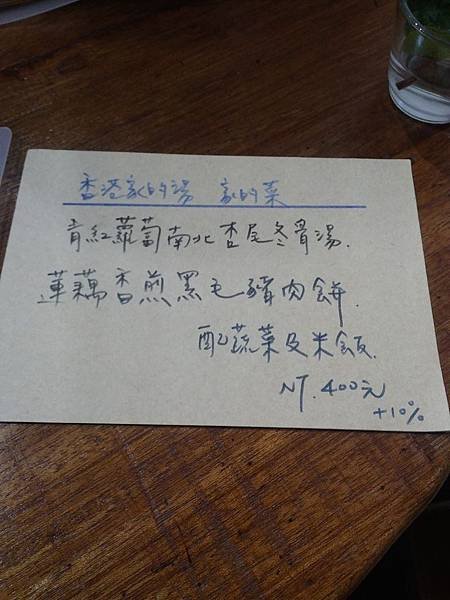 香港家的湯 家的菜
青紅蘿蔔南北杏尾冬骨湯.
蓮藕香煎黑毛豬肉餅.
配蔬菜及米飯.
NT.400元
+10%